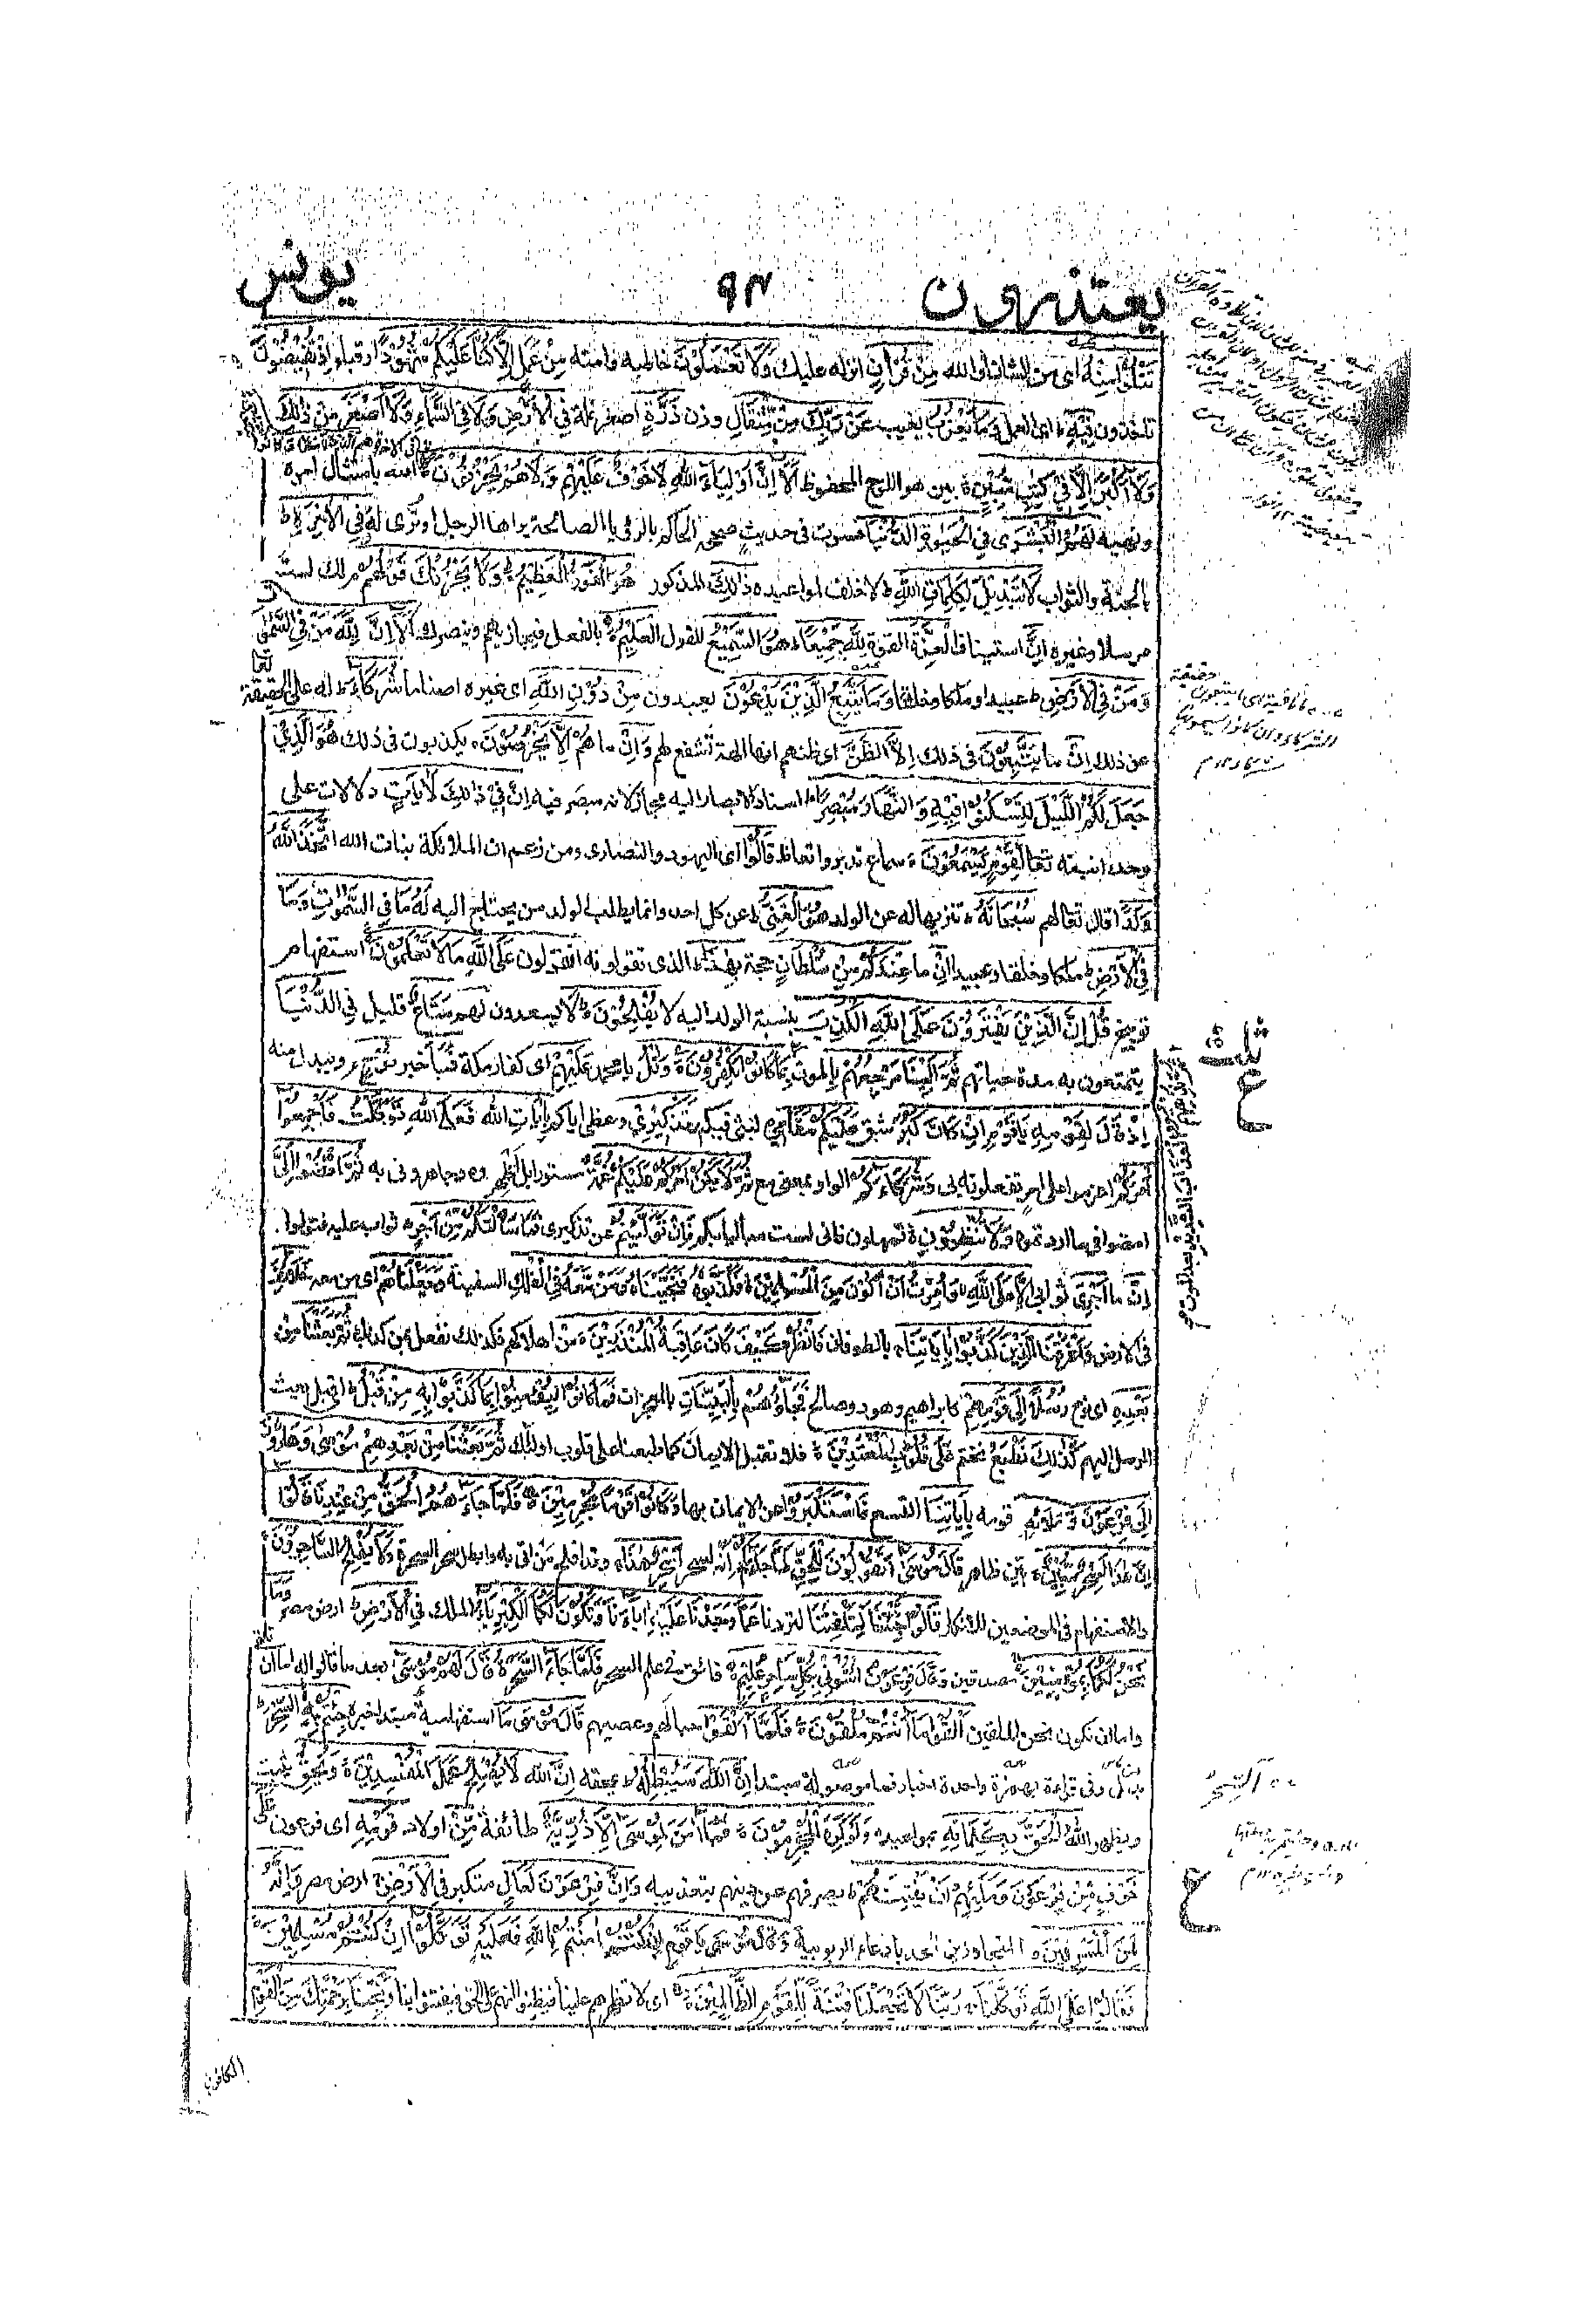 يعتذرون ٩٤ يونس
تَتْلُوْا مِنْهُ اى من الشان او الله مِنْ قُرْاٰنٍ انزله عليك وَلَا تَعْمَلُوْنَ خاطبه وامته مِنْ عَمَلٍ اِلَّا كُنَّا عَلَيْكُمْ شُهُوْدًا رقباء اِذْ تُفِيْضُوْنَ
تاخذون فِيْهِ اى العمل وَمَا يَعْزُبُ يغيب عَنْ رَبِّكَ مِنْ مِّثْقَالِ وزن ذَرَّةٍ اصغر نملة فِي الْاَرْضِ وَلَا فِي السَّمَاءِ وَلَا اَصْغَرَ مِنْ ذٰلِكَ
وَلَا اَكْبَرَ اِلَّا فِيْ كِتٰبٍ مُّبِيْنٍ بين هو اللوح المحفوظ اَلَا اِنَّ اَوْلِيَاءَ اللهِ لَا خَوْفٌ عَلَيْهِمْ وَلَا هُمْ يَحْزَنُوْنَ الله بامتثال امره
ونهيه لَهُمُ الْبُشْرٰى فِي الْحَيٰوةِ الدُّنْيَا فسرت فى حديث صححه الحاكم بالرؤيا الصالحة يراها الرجل او ترى له وَفِي الْاٰخِرَةِ
بالجنة والثواب لَا تَبْدِيْلَ لِكَلِمَاتِ اللهِ لا خلف لمواعيده ذٰلِكَ المذكور هُوَ الْفَوْزُ الْعَظِيْمُ وَلَا يَحْزُنْكَ قَوْلُهُمْ لك لست
مرسلا وغيره اِنَّ استيناف الْعِزَّةَ القوة لِلّٰهِ جَمِيْعًا هُوَ السَّمِيْعُ للقول الْعَلِيْمُ بالفعل فيجازيهم وينصرك اَلَا اِنَّ لِلّٰهِ مَنْ فِي السَّمٰوٰتِ
وَمَنْ فِي الْاَرْضِ عبيدا وملكا وخلقا وَمَا يَتَّبِعُ الَّذِيْنَ يَدْعُوْنَ يعبدون مِنْ دُوْنِ اللهِ اى غيره اصناما شُرَكَاءَ له على الحقيقة تعا
عن ذلك اِنْ ما يَتَّبِعُوْنَ فى ذلك اِلَّا الظَّنَّ اى ظنهم انها الهة تشفع لهم وَاِنْ ما هُمْ اِلَّا يَخْرُصُوْنَ يكذبون فى ذلك هُوَ الَّذِيْ
جَعَلَ لَكُمُ اللَّيْلَ لِتَسْكُنُوْا فِيْهِ وَالنَّهَارَ مُبْصِرًا اسناد الابصار اليه مجاز لانه مبصر فيه اِنَّ فِيْ ذٰلِكَ لَاٰيَاتٍ دلالات على
وحدانيته تعا لِقَوْمٍ يَّسْمَعُوْنَ سماع تدبر واتعاظ قَالُوْا اى اليهود والنصارى ومن زعم ان الملائكة بنات الله اتَّخَذَ اللهُ
وَلَدًا قال تعالهم سُبْحَانَهُ تنزيها له عن الولد هُوَ الْغَنِيُّ عن كل احد وانما يطلب الولد من يحتاج اليه لَهُ مَا فِي السَّمٰوٰتِ وَمَا
فِي الْاَرْضِ ملكا وخلقا وعبيدا اِنْ ما عِنْدَكُمْ مِّنْ سُلْطَانٍ حجة بِهٰذَا الذى تقولونه اَتَقُوْلُوْنَ عَلَى اللهِ مَا لَا تَعْلَمُوْنَ استفهام
توبيخ قُلْ اِنَّ الَّذِيْنَ يَفْتَرُوْنَ عَلَى اللهِ الْكَذِبَ بنسبة الولد اليه لَا يُفْلِحُوْنَ لا يسعدون لهم مَتَاعٌ قليل فِي الدُّنْيَا
يتمتعون به مدة حياتهم ثُمَّ اِلَيْنَا مَرْجِعُهُمْ بالموت بِمَا كَانُوْا يَكْفُرُوْنَ وَاتْلُ يا محمد عَلَيْهِمْ اى كفار مكة نَبَاَ خبر نُوْحٍ ويبدل منه
اِذْ قَالَ لِقَوْمِهِ يَا قَوْمِ اِنْ كَانَ كَبُرَ شق عَلَيْكُمْ مَقَامِيْ لبثى فيكم وَتَذْكِيْرِيْ وعظى اياكم بِاٰيَاتِ اللهِ فَعَلَى اللهِ تَوَكَّلْتُ فَاَجْمِعُوْا
اَمْرَكُمْ اعزموا على امر تفعلونه بى وَشُرَكَاءَكُمْ الواو بمعنى مع ثُمَّ لَا يَكُنْ اَمْرُكُمْ عَلَيْكُمْ غُمَّةً مستورا بل اظهروه وجاهرونى به ثُمَّ اقْضُوْا اِلَيَّ
امضوا فى ما اردتموه وَلَا تُنْظِرُوْنِ تمهلون فانى لست مباليا بكم فَاِنْ تَوَلَّيْتُمْ عن تذكيرى فَمَا سَاَلْتُكُمْ مِّنْ اَجْرٍ ثواب عليه فتولوا
اِنْ ما اَجْرِيَ ثوابى اِلَّا عَلَى اللهِ وَاُمِرْتُ اَنْ اَكُوْنَ مِنَ الْمُسْلِمِيْنَ فَكَذَّبُوْهُ فَنَجَّيْنَاهُ وَمَنْ مَّعَهُ فِي الْفُلْكِ السفينة وَجَعَلْنَاهُمْ اى من معه خَلَائِفَ
فى الارض وَاَغْرَقْنَا الَّذِيْنَ كَذَّبُوْا بِاٰيَاتِنَا بالطوفان فَانْظُرْ كَيْفَ كَانَ عَاقِبَةُ الْمُنْذَرِيْنَ من اهلاكهم فكذلك نفعل بمن كذبك ثُمَّ بَعَثْنَا مِنْ
بَعْدِهِ اى نوح رُسُلًا اِلٰى قَوْمِهِمْ كابراهيم وهود وصالح فَجَاؤُهُمْ بِالْبَيِّنَاتِ بالمعجزات فَمَا كَانُوْا لِيُؤْمِنُوْا بِمَا كَذَّبُوْا بِهِ مِنْ قَبْلُ اى قبل بعث
الرسل اليهم كَذٰلِكَ نَطْبَعُ نختم عَلٰى قُلُوْبِ الْمُعْتَدِيْنَ فلا تقبل الايمان كما طبعنا على قلوب اولئك ثُمَّ بَعَثْنَا مِنْ بَعْدِهِمْ مُوْسٰى وَهَارُوْنَ
اِلٰى فِرْعَوْنَ وَمَلَئِهِ قومه بِاٰيَاتِنَا التسع فَاسْتَكْبَرُوْا عن الايمان بها وَكَانُوْا قَوْمًا مُّجْرِمِيْنَ فَلَمَّا جَاءَهُمُ الْحَقُّ مِنْ عِنْدِنَا قَالُوْا
اِنَّ هٰذَا لَسِحْرٌ مُّبِيْنٌ بين ظاهر قَالَ مُوْسٰى اَتَقُوْلُوْنَ لِلْحَقِّ لَمَّا جَاءَكُمْ انه لسحر اَسِحْرٌ هٰذَا وقد افلح من اتى به وابطل سحر السحرة وَلَا يُفْلِحُ السَّاحِرُوْنَ
والاستفهام فى الموضعين للانكار قَالُوْا اَجِئْتَنَا لِتَلْفِتَنَا لتردنا عَمَّا وَجَدْنَا عَلَيْهِ اٰبَاءَنَا وَتَكُوْنَ لَكُمَا الْكِبْرِيَاءُ الملك فِي الْاَرْضِ ارض مصر وَمَا
نَحْنُ لَكُمَا بِمُؤْمِنِيْنَ مصدقين وَقَالَ فِرْعَوْنُ ائْتُوْنِيْ بِكُلِّ سَاحِرٍ عَلِيْمٍ فائق فى علم السحر فَلَمَّا جَاءَ السَّحَرَةُ قَالَ لَهُمْ مُّوْسٰى بعد ما قالوا له اما ان تلقى
واما ان نكون نحن الملقين اَلْقُوْا مَا اَنْتُمْ مُّلْقُوْنَ فَلَمَّا اَلْقَوْا حبالهم وعصيهم قَالَ مُوْسٰى مَا استفهامية مبتدا خبره جِئْتُمْ بِهِ السِّحْرُ
بدل وفى قراءة بهمزة واحدة اخبار فما موصولة مبتدا اِنَّ اللهَ سَيُبْطِلُهُ سيمحقه اِنَّ اللهَ لَا يُصْلِحُ عَمَلَ الْمُفْسِدِيْنَ وَيُحِقُّ يثبت
ويظهر اللهُ الْحَقَّ بِكَلِمَاتِهِ بمواعيده وَلَوْ كَرِهَ الْمُجْرِمُوْنَ فَمَا اٰمَنَ لِمُوْسٰى اِلَّا ذُرِّيَّةٌ طائفة مِّنْ اولاد قَوْمِهِ اى فرعون عَلٰى
خَوْفٍ مِّنْ فِرْعَوْنَ وَمَلَئِهِمْ اَنْ يَفْتِنَهُمْ يصرفهم عن دينهم بتعذيبه وَاِنَّ فِرْعَوْنَ لَعَالٍ متكبر فِي الْاَرْضِ ارض مصر وَاِنَّهُ
لَمِنَ الْمُسْرِفِيْنَ المتجاوزين الحد بادعاء الربوبية وَقَالَ مُوْسٰى يَا قَوْمِ اِنْ كُنْتُمْ اٰمَنْتُمْ بِاللهِ فَعَلَيْهِ تَوَكَّلُوْا اِنْ كُنْتُمْ مُّسْلِمِيْنَ
فَقَالُوْا عَلَى اللهِ تَوَكَّلْنَا رَبَّنَا لَا تَجْعَلْنَا فِتْنَةً لِّلْقَوْمِ الظَّالِمِيْنَ اى لا تظهرهم علينا فيظنوا انهم على الحق فيفتنوا بنا وَنَجِّنَا بِرَحْمَتِكَ مِنَ الْقَوْمِ
الكافرين
ثلثة
ع
السحر
ع